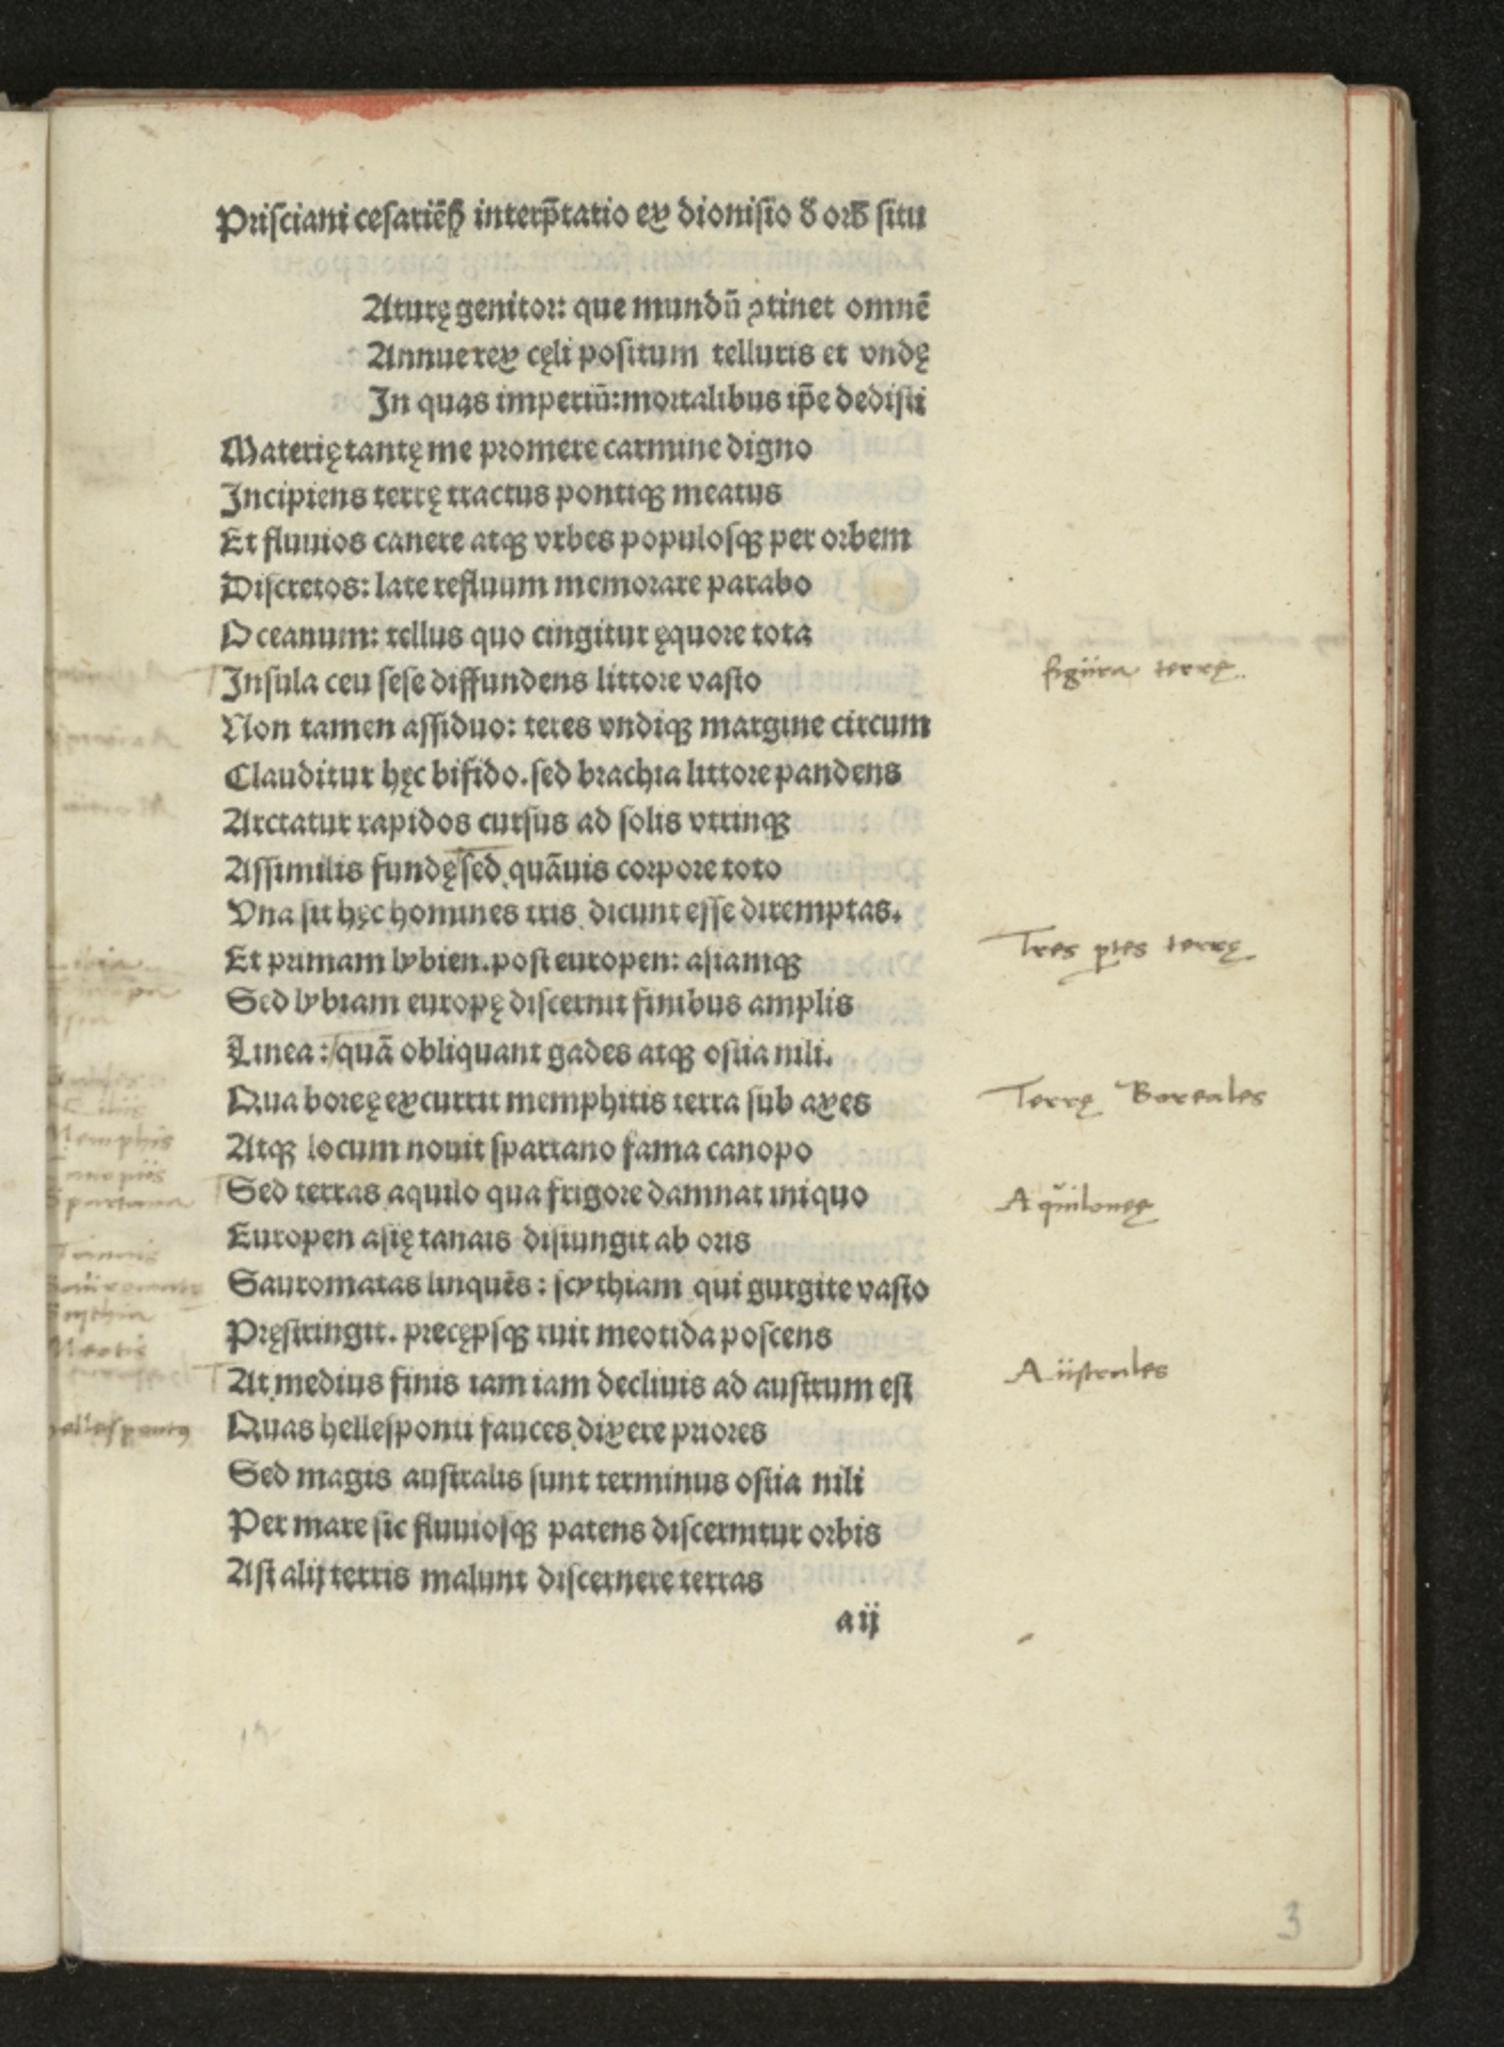 Prisciani cesariēsꝭ interp̄tatio ex dionisio ꝺ̄ orb̄ situ
Aturę genitor: que mundū ꝯtinet omnē
Annue rex cęli positum telluris et vndę
In quas imperiū: mortalibus ip̄e dedisti
Materię tantę me promere carmine digno
Incipiens terrę tractus pontiqꝫ meatus
Et fluuios canere atqꝫ vrbes populosqꝫ per orbem
Discretos: late refluum memorare parabo
Oceanum: tellus quo cingitur ęquore tota
Insula ceu sese diffundens littore vasto
figura terrę.
Non tamen assiduo: teres vndiqꝫ margine circum
Clauditur hęc bifido. sed brachia littore pandens
Arctatur rapidos cursus ad solis vtrinqꝫ
Assimilis fundę sed quāuis corpore toto
Vna sit hęc homines tris dicunt esse diremptas.
Et primam lybien. post europen: asiamqꝫ
Tres ꝑtes terrę
Sed lybiam europę discernit finibus amplis
Linea: quā obliquant gades atqꝫ ostia nili.
Qua boreę excurrit memphitis terra sub axes
Terrę Boreales
Atqꝫ locum nouit spartano fama canopo
Memphis
Sed terras aquilo qua frigore damnat iniquo
Aquilonę
Europen asię tanais disiungit ab oris
Sauromatas linquēs: scythiam qui gurgite vasto
Pręstringit. precępsqꝫ ruit meotida poscens
Meotis
At medius finis tam iam decliuis ad austrum est
Australes
Quas hellesponti fauces dixere priores
Sed magis australis sunt terminus ostia nili
Per mare sic fluuiosqꝫ patens discernitur orbis
Ast alij terris malunt discernere terras
a ij
3